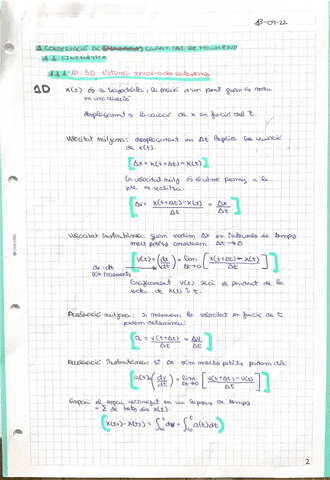 13-09-22
1. CONSERVACIÓ DE QUANTITAT DE MOVIMENT
1.1. CINEMÀTICA
1.1.1 1D, 3D sistema
1D x(t) és la trajectòria, la posició d'un punt quan es mou
en una direcció
desplaçament és la variació de x en funció del t.
Velocitat mitjana: desplaçament en Δt implica una variació
de x(t).
[Δx = x(t+Δt) - x(t)]
La velocitat mitj és el
[Δv = x(t+Δt) - x(t) / Δt = Δx / Δt]
Velocitat instantània: quan Δx en intervals de temps
molt petits considerem Δt → 0
dx i dt
són
[v(t) = (dx/dt) = lim Δt→0 [x(t+Δt) - x(t) / Δt]]
Gràficament v(t) serà el pendent de la
recta de x(t) i t.
Acceleració mitjana: si mesurem la velocitat en funció de t
podem determinar:
[a = v(t+Δt) / Δt = Δv / Δt]
Acceleració Instantània: Si Δt són molt petits podem dir:
[a(t) = (dv/dt) = lim Δt→0 [v(t+Δt) - v(t) / Δt]]
Espai: el espai recorregut en un de temps
= Σ de tots els x(t).
2